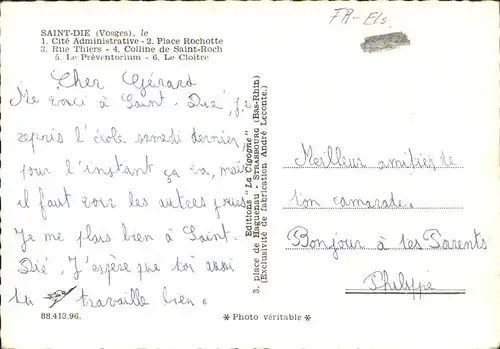 SAINT-DIE (Vosges), le
1. Cité Administrative - 2. Place Rochotte
3. Rue Thiers - 4. Colline de Saint-Roch
5. Le Préventorium - 6. Le Cloître
FR-Els.
Cher Gérard
Me voici à Saint-Dié, j'ai
repris l'école samedi dernier,
pour l'instant ça va, mais
il faut voir les autres jours
Je me plus bien à Saint-
Dié, J'espère que toi aussi
tu travaille bien.
88.413.96.
Editions "La Cigogne"
3, place de Haguenau - STRASBOURG (Bas-Rhin)
(Exclusivité de fabrication André Leconte.)
Meilleur amitiés de
ton camarade.
Bonjour à tes Parents
Philippe
* Photo véritable *